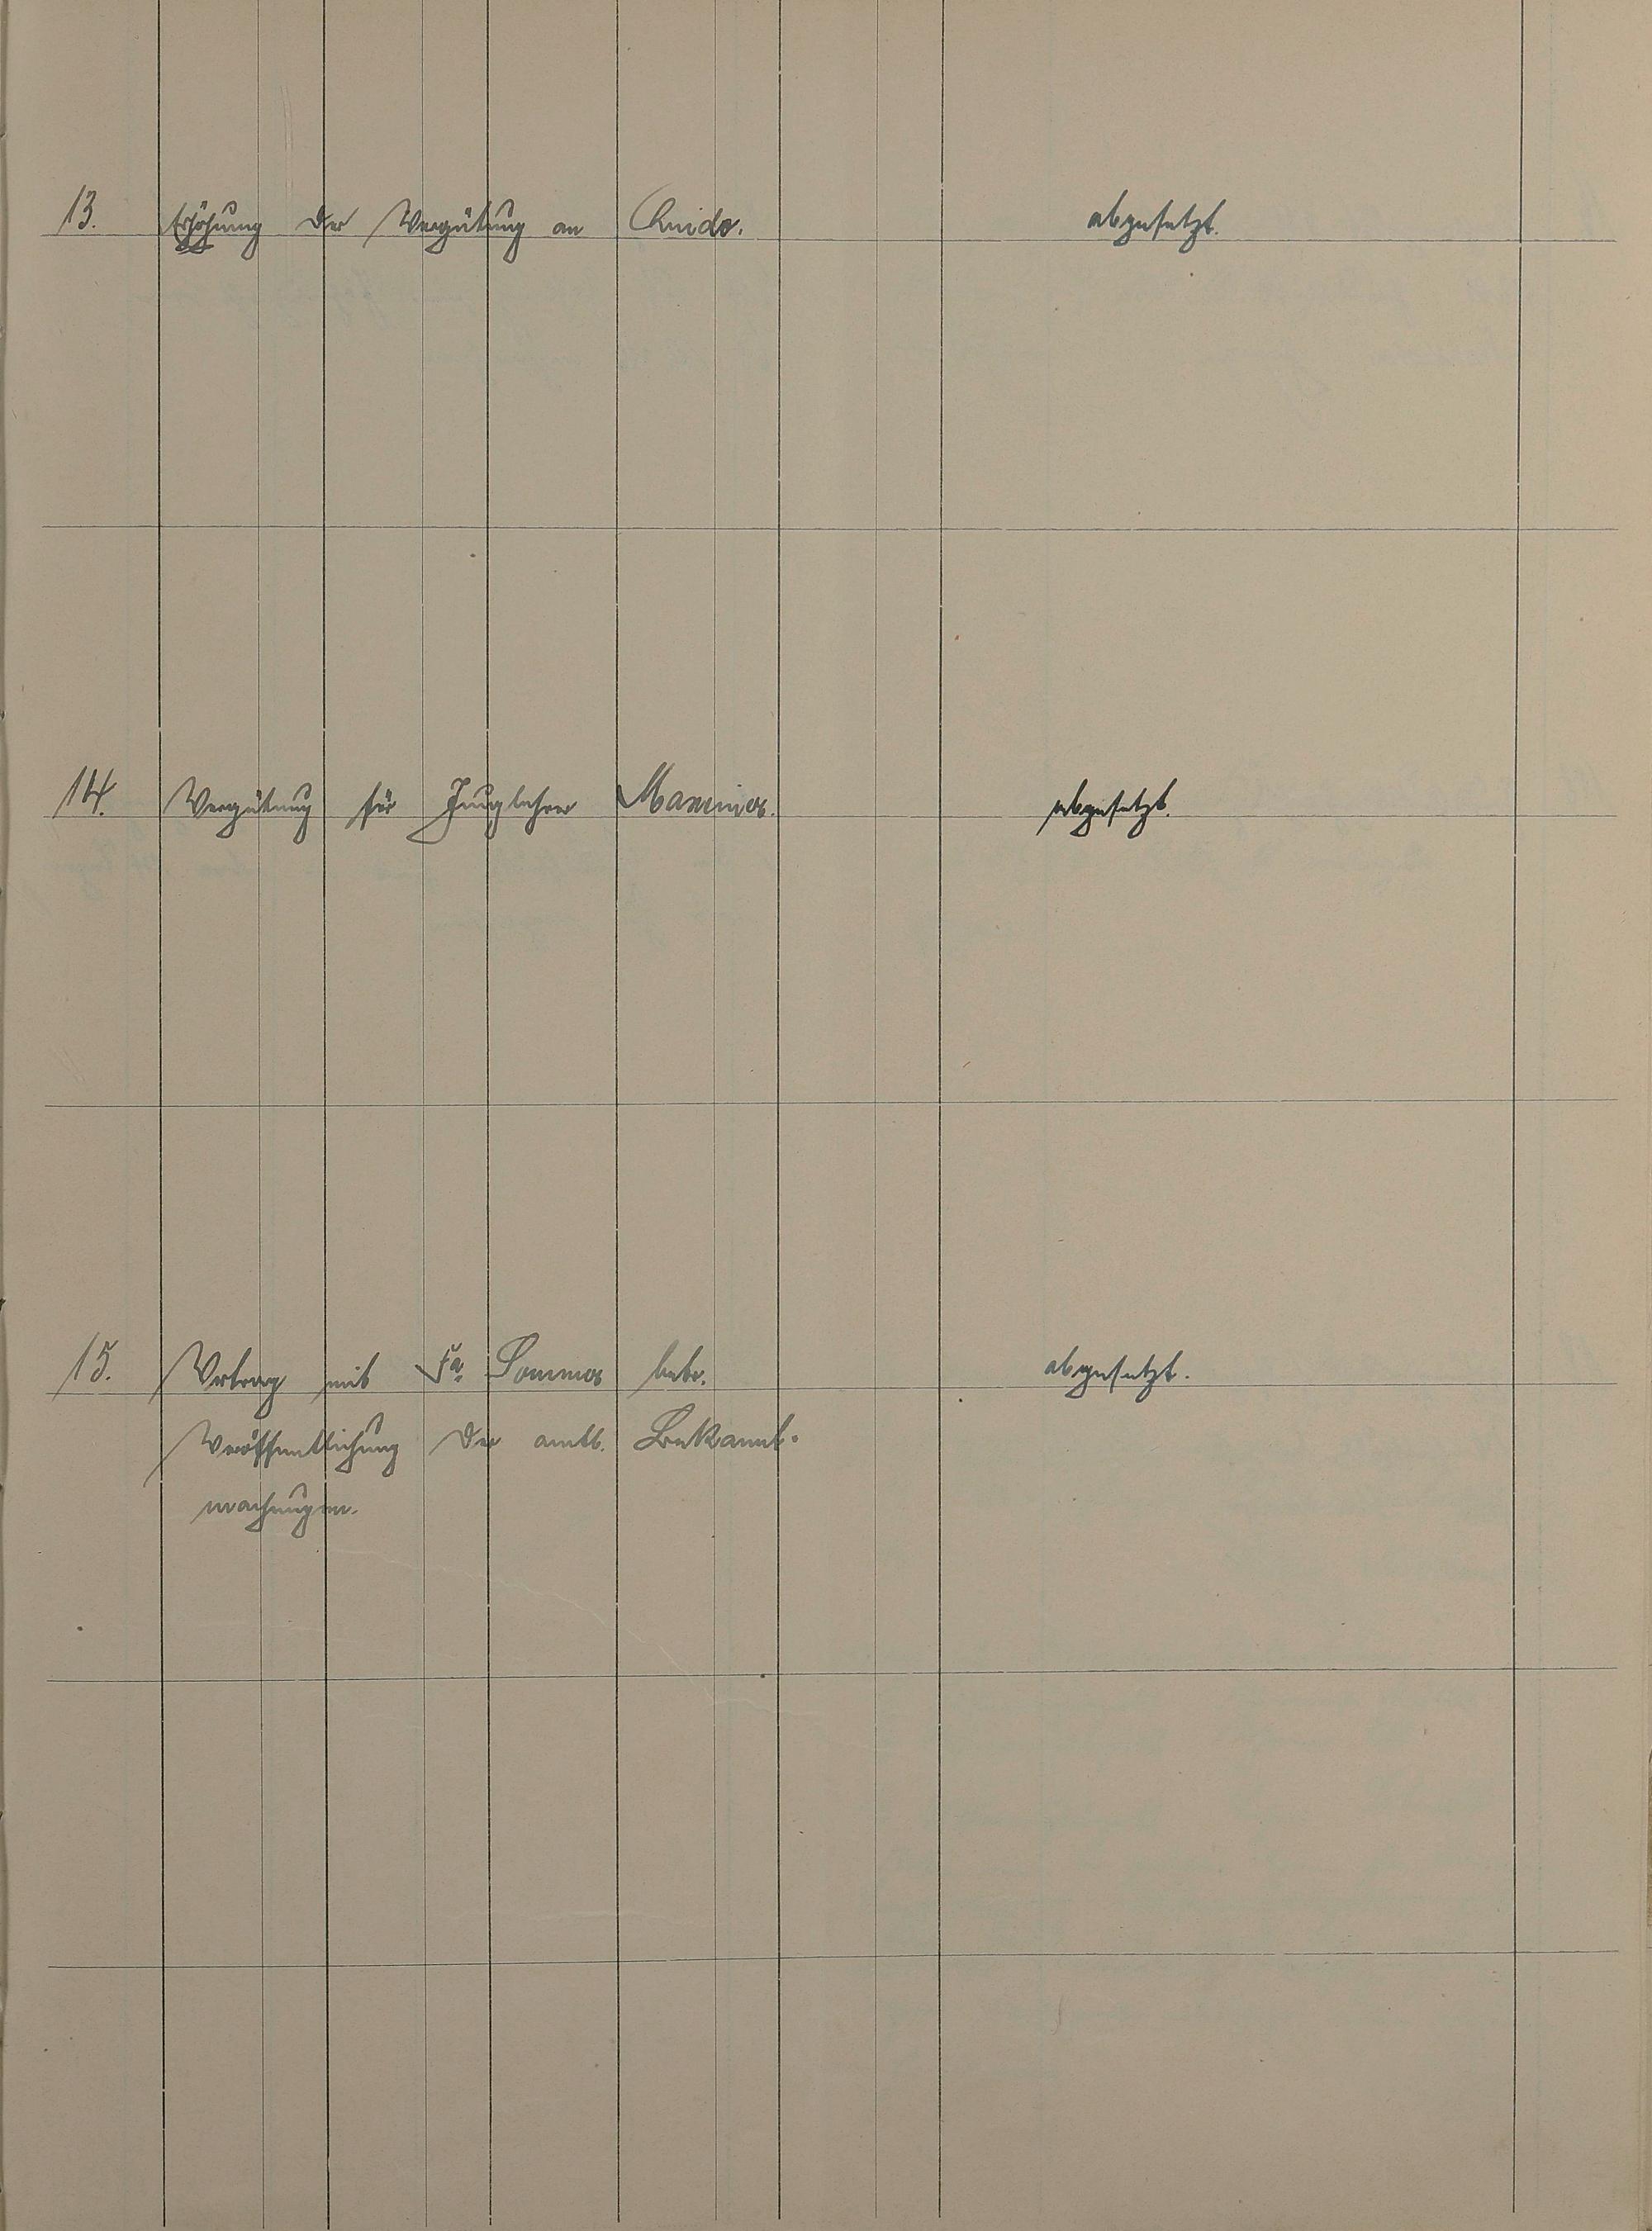 13. Erhöhung der Vergütung an abgesetzt.
14. Vergütung für Junglehrer abgesetzt.
15. Vertrag mit Fa. Sommer betr. abgesetzt.
Veröffentlichung der amtl. Bekannt-
machungen.